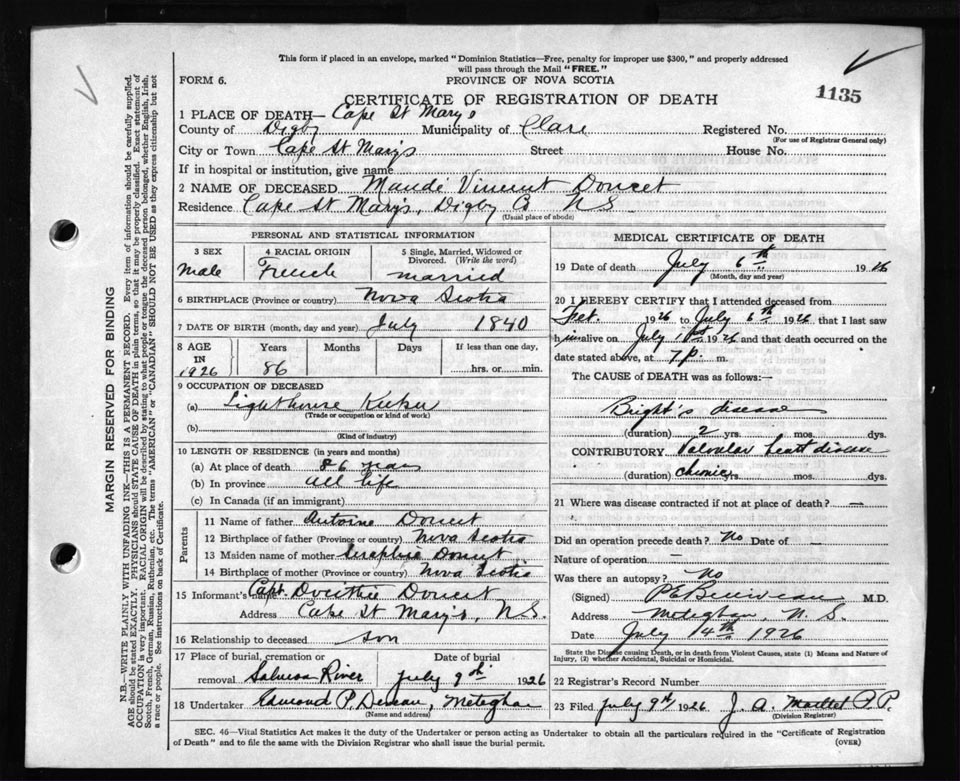 This form if placed in an envelope, marked "Dominion Statistics—Free, penalty for improper use $300," and properly addressed
will pass through the Mail "FREE."
FORM 6. PROVINCE OF NOVA SCOTIA
CERTIFICATE OF REGISTRATION OF DEATH 1135
1 PLACE OF DEATH— Cape St Mary's
County of Digby Municipality of Clare Registered No.
(For use of Registrar General only)
City or Town Cape St Mary's Street House No.
If in hospital or institution, give name
2 NAME OF DECEASED Mandé Vincent Doucet
Residence Cape St Mary's, Digby Co N.S.
(Usual place of abode)
PERSONAL AND STATISTICAL INFORMATION
3 SEX 4 RACIAL ORIGIN 5 Single, Married, Widowed or
Divorced. (Write the word)
Male French married
6 BIRTHPLACE (Province or country) Nova Scotia
7 DATE OF BIRTH (month, day and year) July 1840
8 AGE Years Months Days If less than one day,
IN
1926 86 hrs. or min.
9 OCCUPATION OF DECEASED
(a) Lighthouse Keeper
(Trade or occupation or kind of work)
(b)
(Kind of industry)
10 LENGTH OF RESIDENCE (in years and months)
(a) At place of death 86 years
(b) In province all life
(c) In Canada (if an immigrant)
Parents
11 Name of father Antoine Doucet
12 Birthplace of father (Province or country) Nova Scotia
13 Maiden name of mother Seraphie Doucet
14 Birthplace of mother (Province or country) Nova Scotia
15 Informant's name Capt. Doucet
Address Cape St Mary's, N.S.
16 Relationship to deceased son
17 Place of burial, cremation or Date of burial
removal Salmon River July 9th 1926
18 Undertaker Edmond P. Deveau, Meteghan
(Name and address)
MEDICAL CERTIFICATE OF DEATH
19 Date of death July 6th 1926
(Month, day and year)
20 I HEREBY CERTIFY that I attended deceased from
Feb. 1926 to July 6th 1926 that I last saw
him alive on July 1st 1926 and that death occurred on the
date stated above, at 7 p. m.
The CAUSE of DEATH was as follows:—
Bright's disease
(duration) 2 yrs. mos. dys.
CONTRIBUTORY Valvular heart disease
(duration) chronic yrs. mos. dys.
21 Where was disease contracted if not at place of death? —
Did an operation precede death? No Date of —
Nature of operation —
Was there an autopsy? No
(Signed) M.D.
Address Meteghan, N. S.
Date July 14th 1926
State the Disease causing Death, or in death from Violent Causes, state (1) Means and Nature of
Injury, (2) whether Accidental, Suicidal or Homicidal.
22 Registrar's Record Number
23 Filed July 9th 1926 J. A. Maillet P.P.
(Division Registrar)
SEC. 46—Vital Statistics Act makes it the duty of the Undertaker or person acting as Undertaker to obtain all the particulars required in the "Certificate of Registration
of Death" and to file the same with the Division Registrar who shall issue the burial permit. (OVER)
MARGIN RESERVED FOR BINDING
N.B.—WRITE PLAINLY WITH UNFADING INK—THIS IS A PERMANENT RECORD. Every item of information should be carefully supplied.
AGE should be stated EXACTLY. PHYSICIANS should STATE CAUSE OF DEATH in plain terms, so that it may be properly classified. Exact statement of
OCCUPATION is very important. RACIAL ORIGIN will be described by stating to what people or tongue the deceased person belonged, whether English, Irish,
Scotch, French, German, Russian, Ruthenian, etc. The terms "AMERICAN" or "CANADIAN" SHOULD NOT BE USED as they express citizenship but not
a race or people. See instructions on back of Certificate.